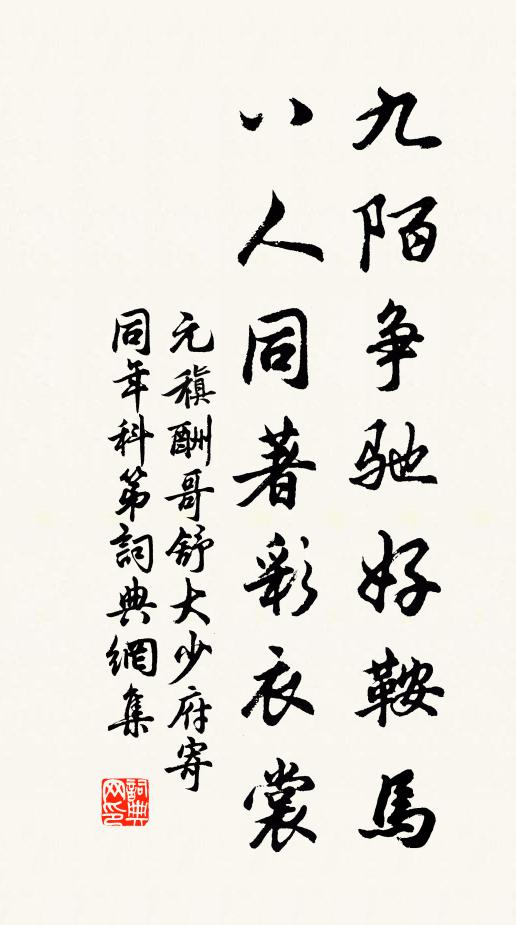 九陌争驰好鞍馬
八人同著彩衣裳
元稹酬哥舒大少府寄
同年科第詞典網集
詞典网印